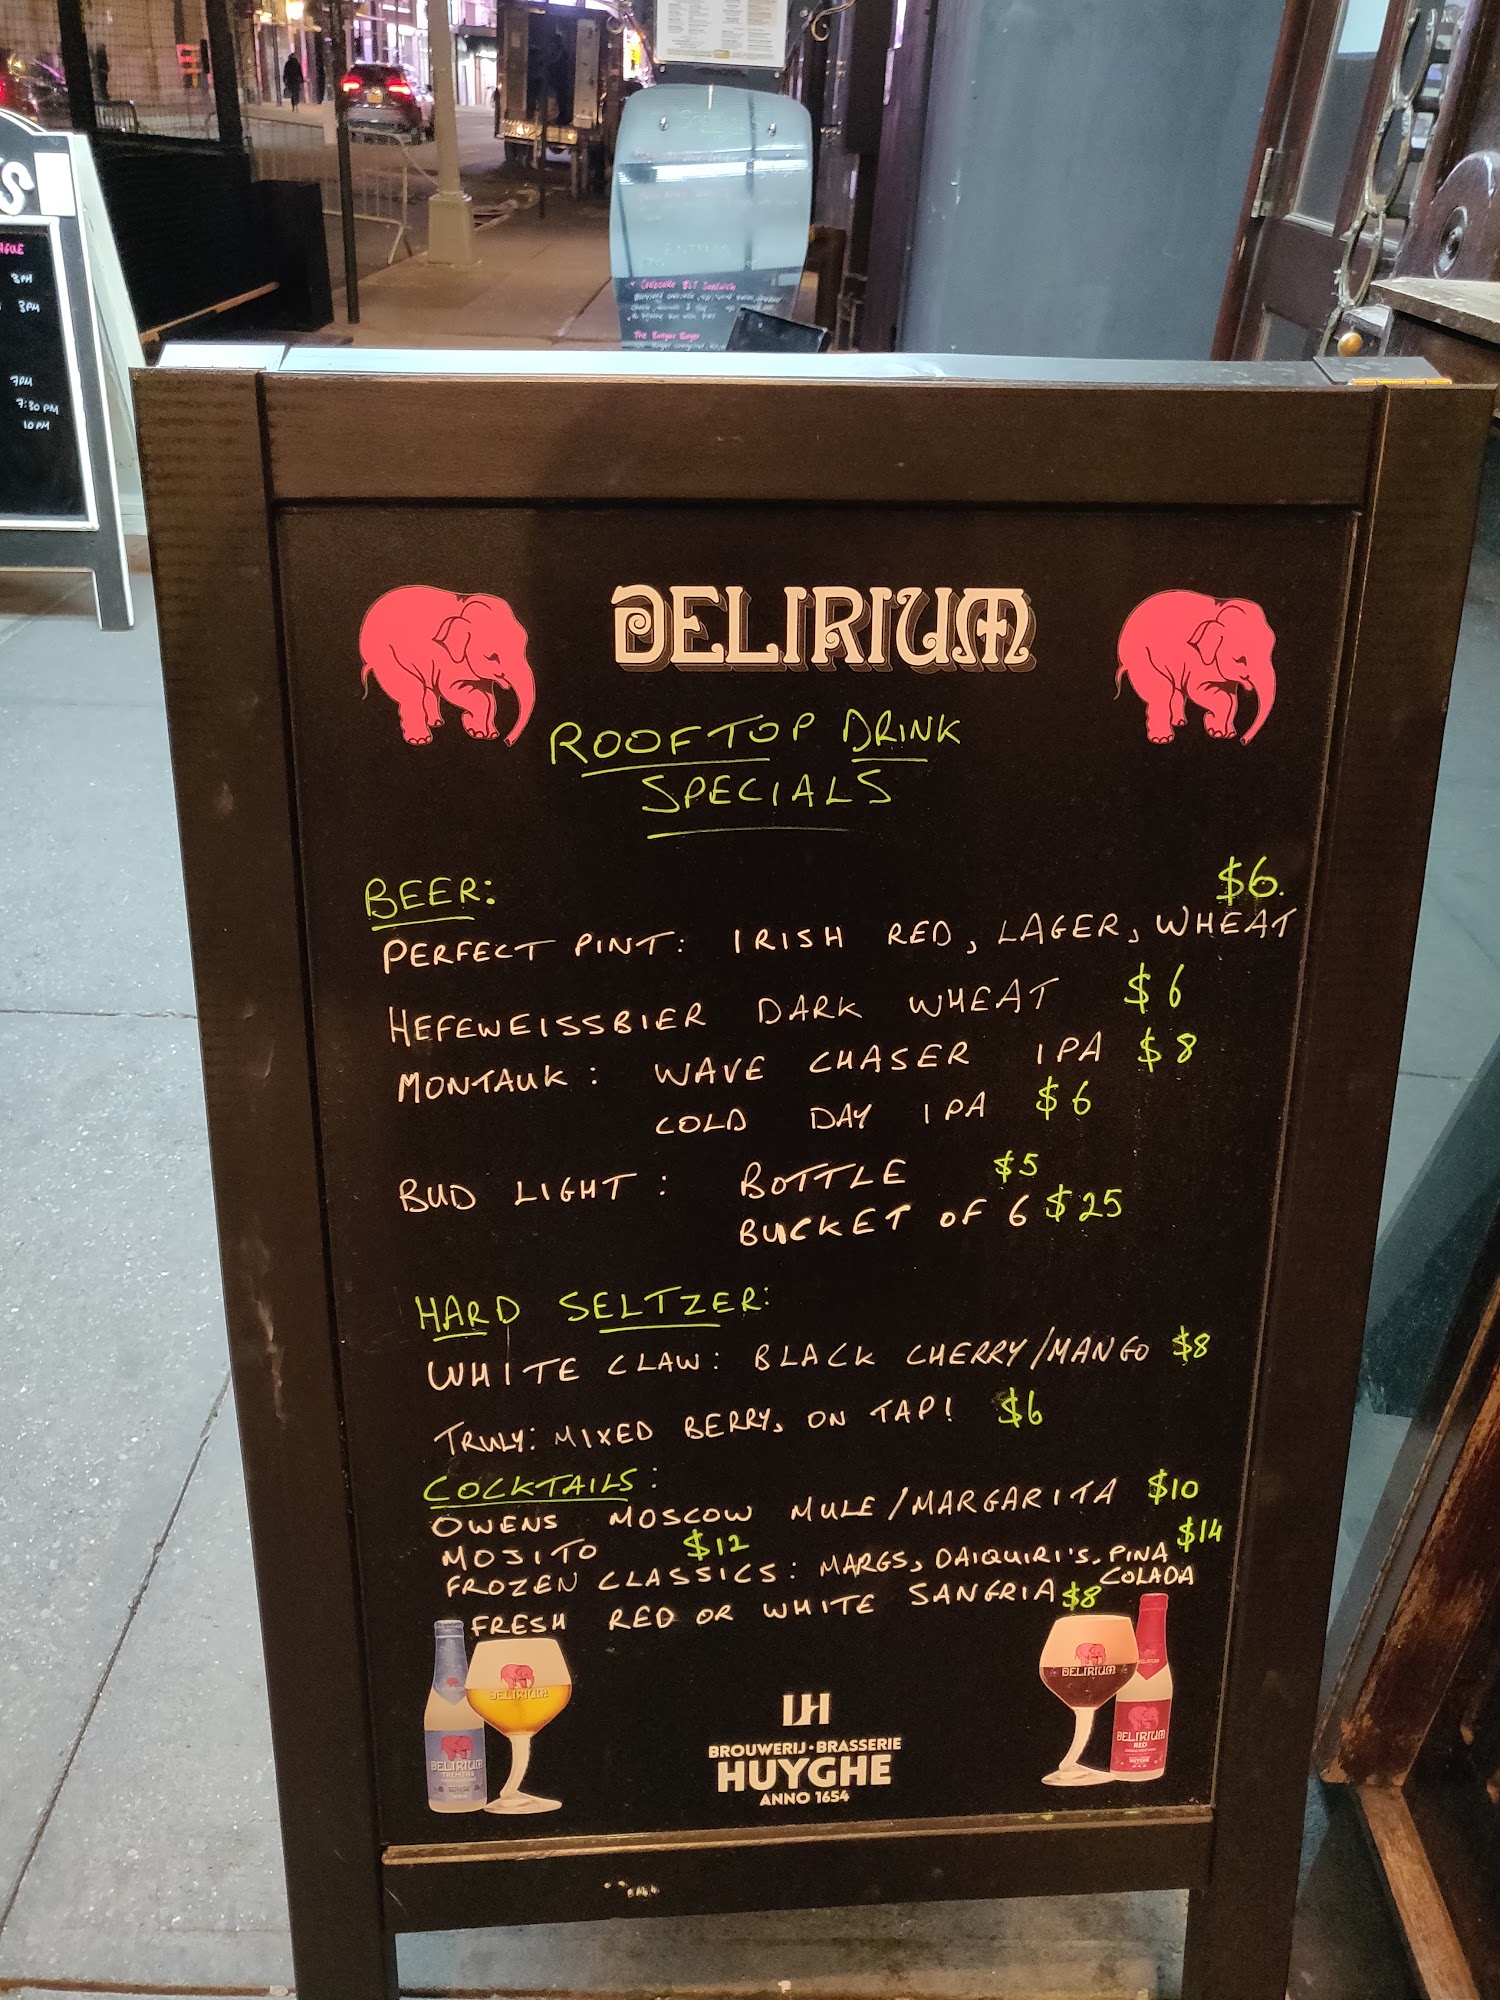 S
AGUE
3PM
3PM
7PM
7:30 PM
10 PM
The Burger
DELIRIUM
ROOFTOP DRINK
SPECIALS
BEER: $6.
PERFECT PINT: IRISH RED, LAGER, WHEAT
HEFEWEISSBIER DARK WHEAT $6
MONTAUK: WAVE CHASER IPA $8
COLD DAY IPA $6
BUD LIGHT: BOTTLE $5
BUCKET OF 6 $25
HARD SELTZER:
WHITE CLAW: BLACK CHERRY/MANGO $8
TRULY: MIXED BERRY, ON TAP! $6
COCKTAILS:
OWENS MOSCOW MULE/MARGARITA $10
MOJITO $12
FROZEN CLASSICS: MARGS, DAIQUIRI'S. PINA COLADA $14
FRESH RED OR WHITE SANGRIA $8
DELIRIUM
DELIRIUM
TREMENS
HUYGHE
DELIRIUM
DELIRIUM
RED
HUYGHE
LH
BROUWERIJ·BRASSERIE
HUYGHE
ANNO 1654